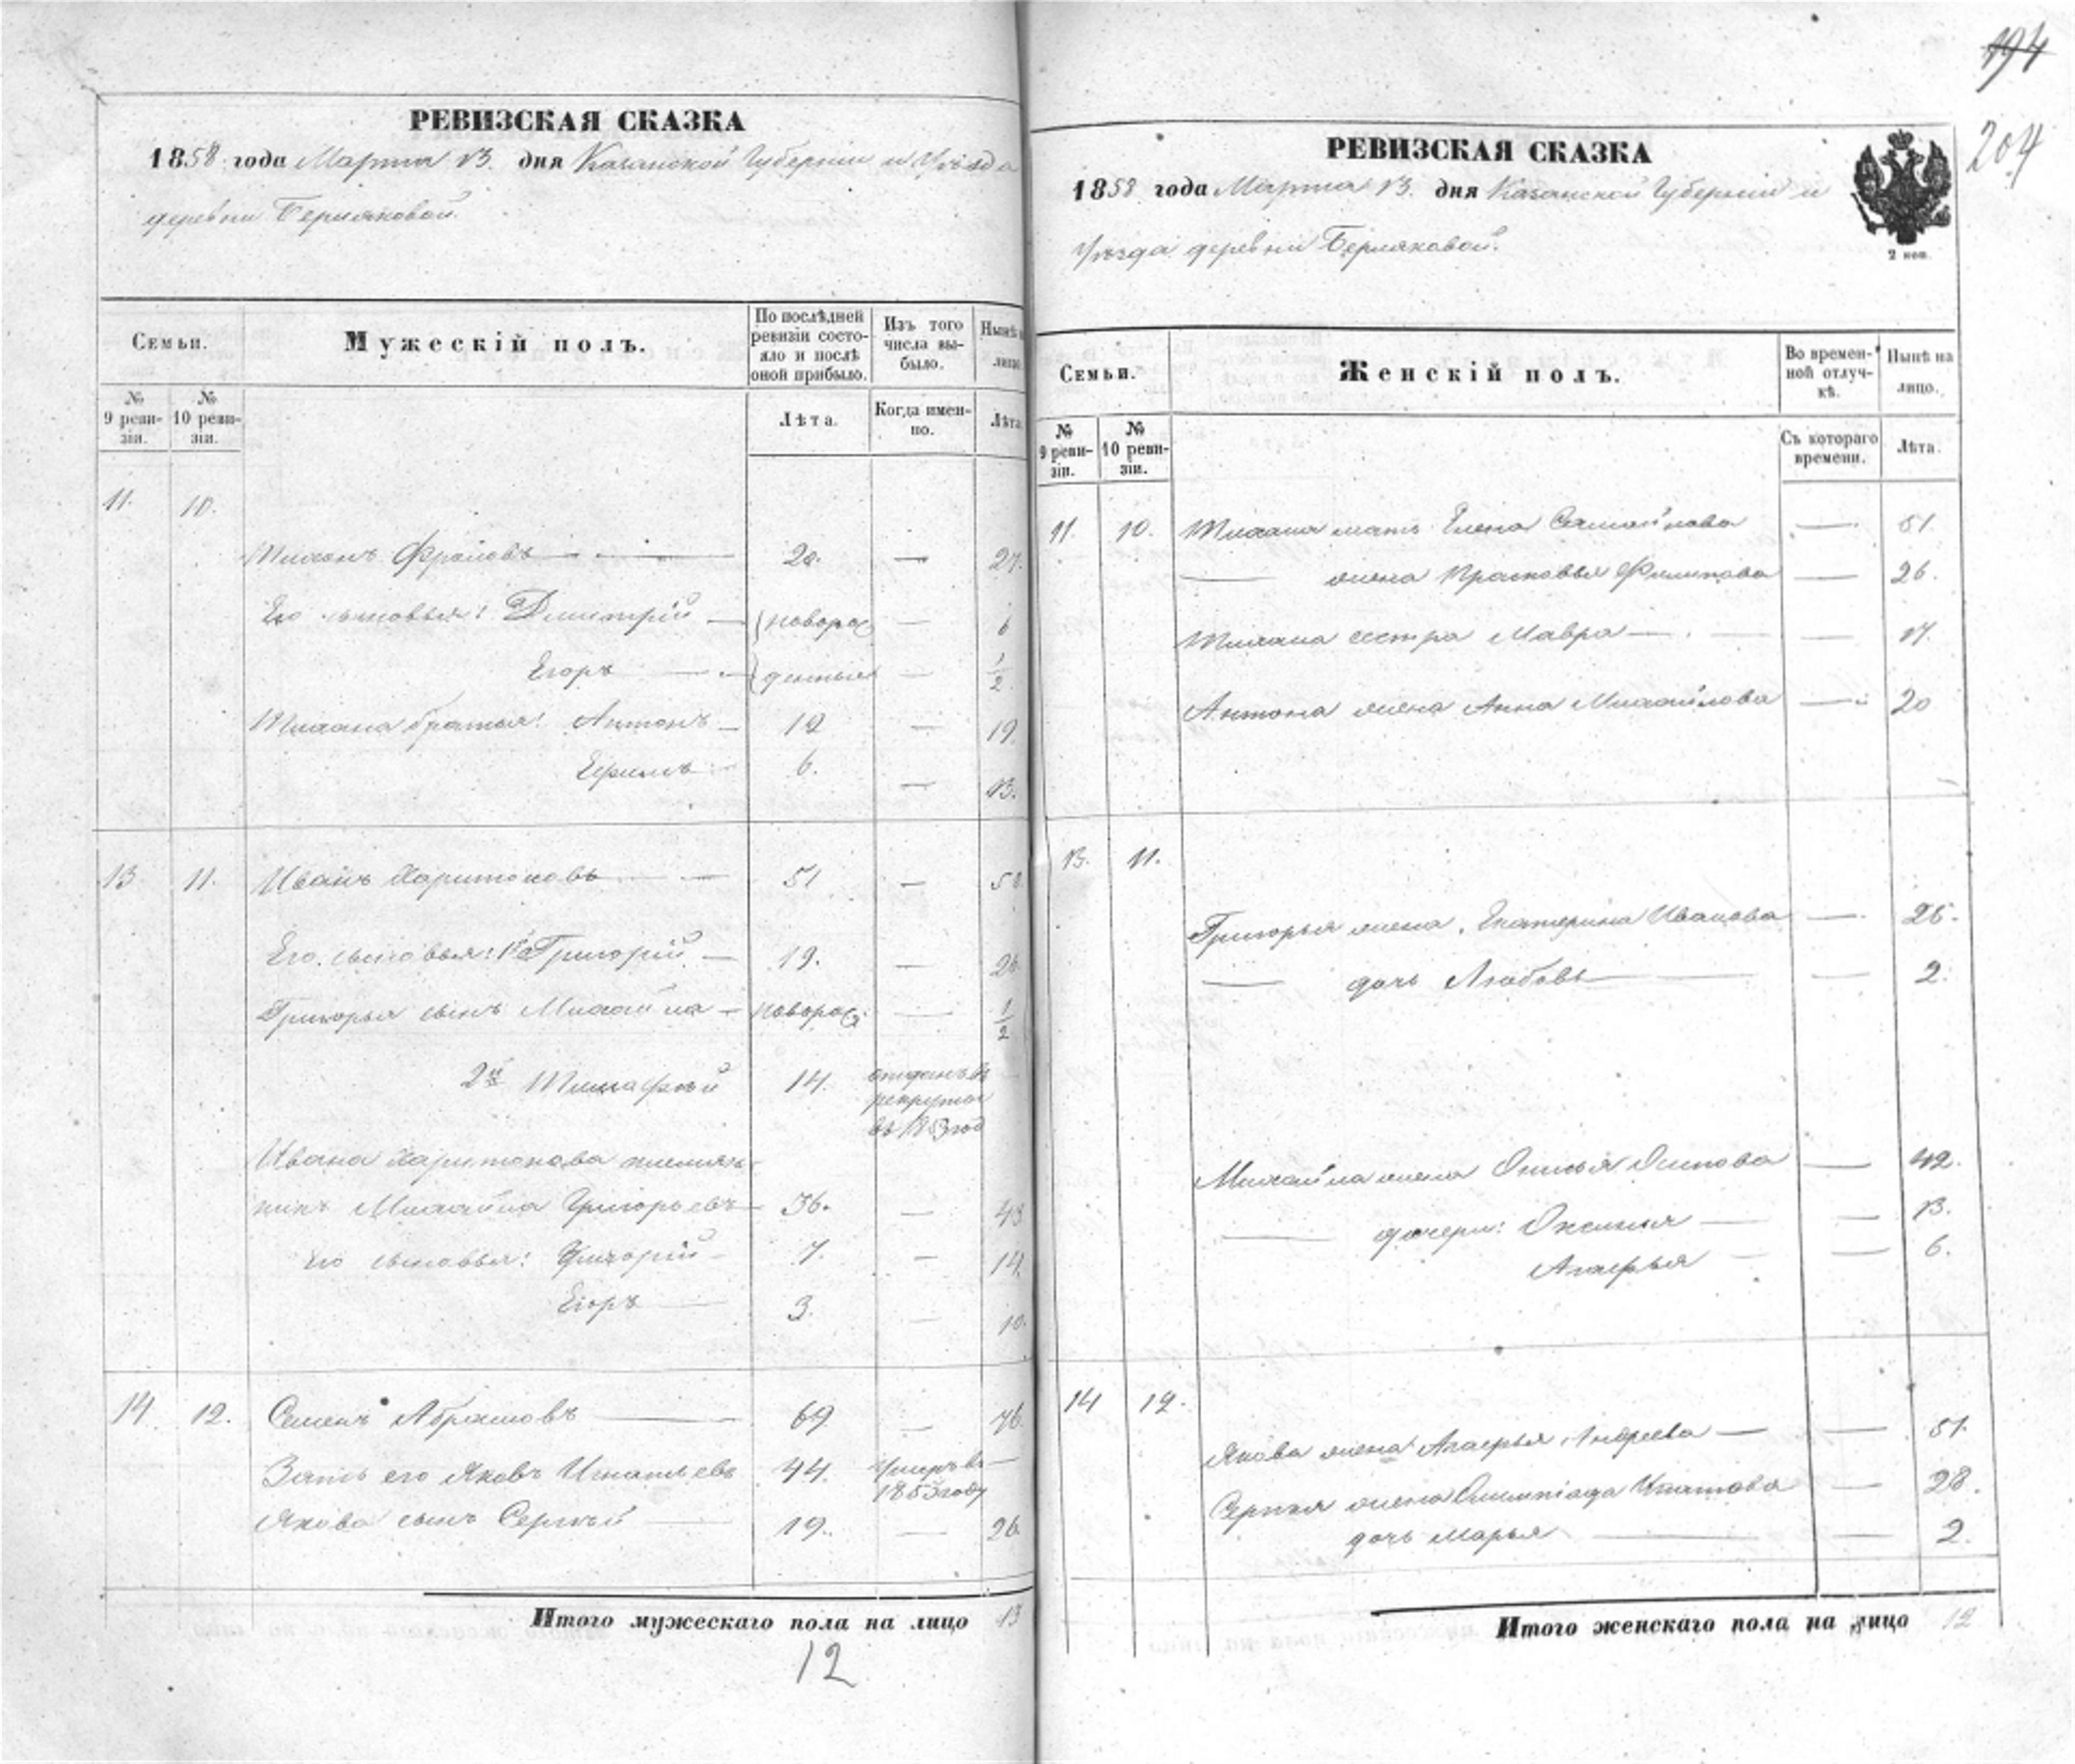 РЕВИЗСКАЯ СКАЗКА
1858 года Марта 13. дня Казанской Губернiи и Уѣзда
деревни Берляковой.
Семьи.
Мужескiй полъ.
По послѣдней ревизiи состояло и послѣ оной прибыло.
Изъ того числа выбыло.
Нынѣ на лицо.
№ 9 ревизiи.
№ 10 ревизiи.
Лѣта.
Когда именно.
Лѣта.
11. 10.
Фроловъ 20. — 27.
Его сыновья: 1й Дмитрiй — новорож — 6
Егоръ — денные — 1/2.
братья: Антонъ — 12 — 19.
Ефимъ — 6. — 13.
13. 11. Иванъ Харитоновъ — 51 — 58.
Его сыновья: 1й Григорiй — 19. — 26
Григорья сынъ Михайла — новорож. — 1/2
2й Тимофѣй 14. отданъ въ
рекруты
въ 1853 год
Ивана Харитонова племян-
никъ Михайла Григорьевъ — 36. — 43
его сыновья: Григорiй — 7. — 14.
Егоръ — 3. — 10.
14. 12. Семенъ Абрамовъ — 69 — 76.
Зать его Яковъ Игнатьевъ 44. Умеръ въ —
1853 году
Якова сынъ Сергѣй — 19. — 26.
Итого мужескаго пола на лицо 13
12
194
204
РЕВИЗСКАЯ СКАЗКА
1858 года Марта 13. дня Казанской Губернiи и
Уѣзда деревни Берляковой.
2 коп.
Семьи.
Женскiй полъ.
Во временной отлучкѣ.
Нынѣ на лицо.
№ 9 ревизiи.
№ 10 ревизiи.
Съ котораго времени.
Лѣта.
11. 10. мать Елена Самойлова — 51.
— жена Прасковья Филипова — 26.
сестра Мавра — — 17.
Антона жена Анна Михайлова — 20
13. 11.
Григорья жена Екатерина Иванова — 25.
— дочь Любовь — — 2.
Михайла жена Осипова — 42.
— дочери: — — 13.
Агафья — — 6.
14 12.
Якова жена Агафья Андреева — — 51.
Сергѣя жена Олимпiада Игнатова — 28.
дочь Марья — — 2.
Итого женскаго пола на лицо 12